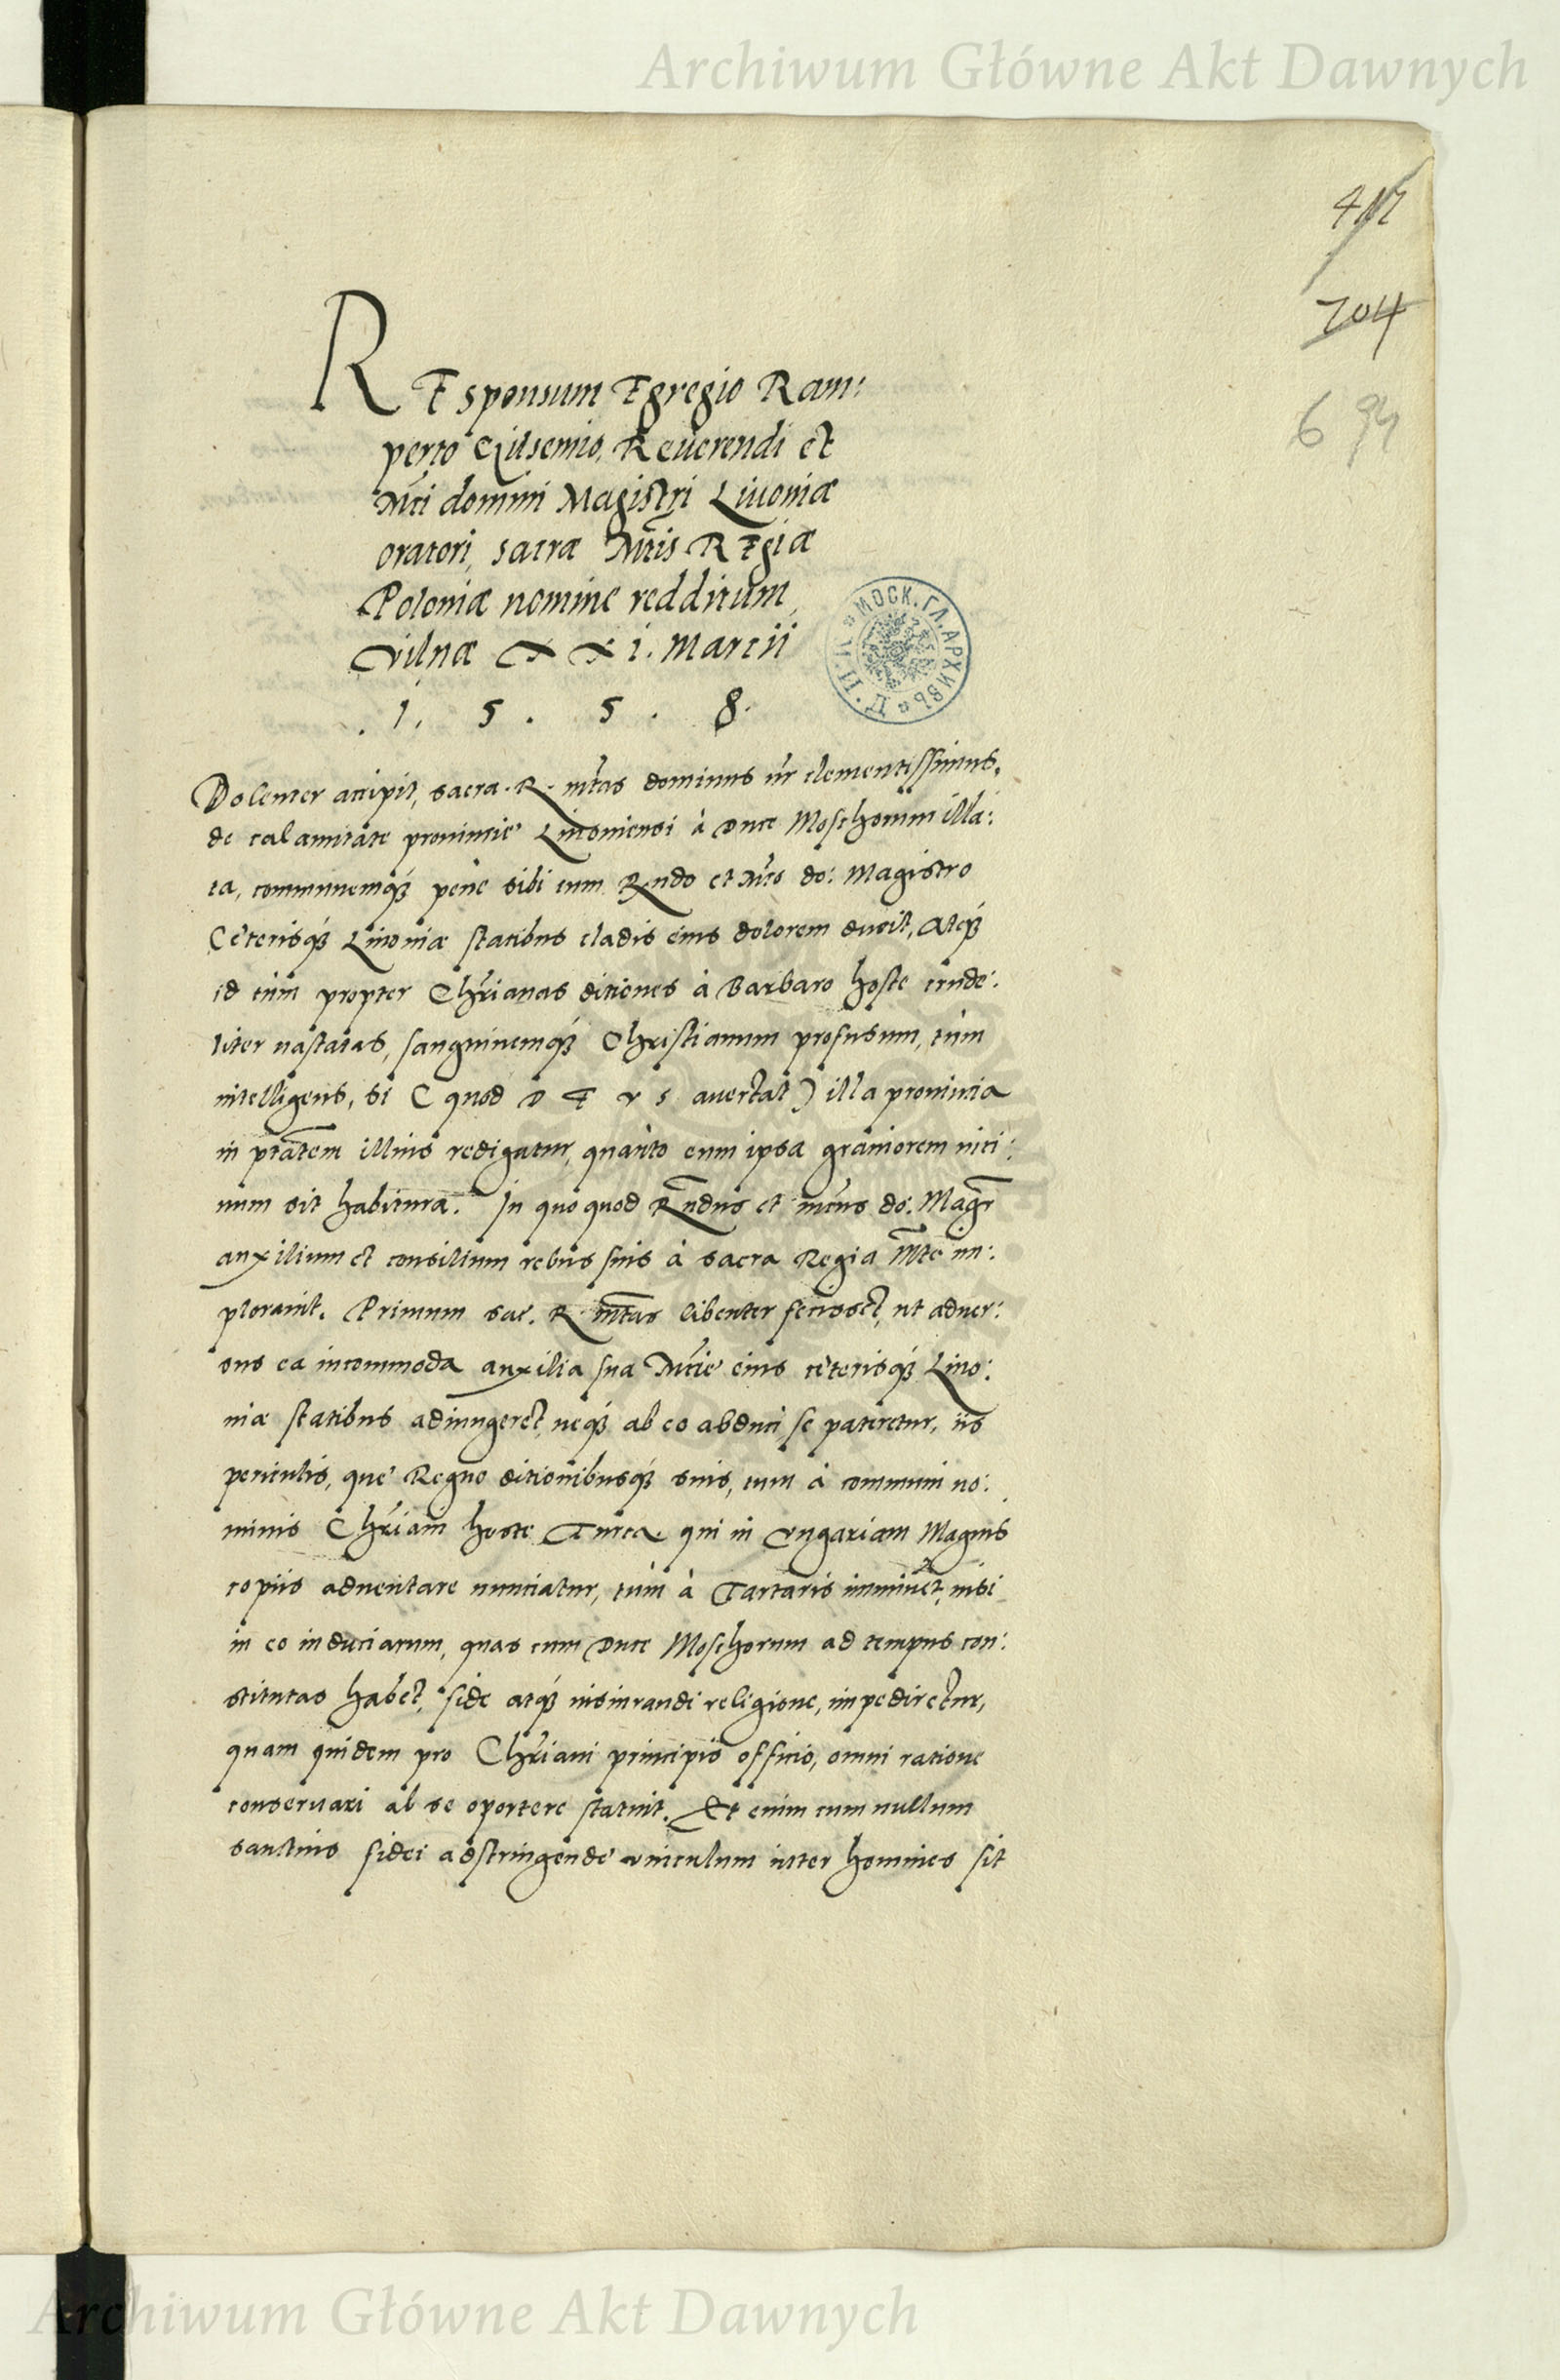 Archiwum Główne Akt Dawnych
417
704
694
REsponsum Egregio Ram:
perto Gilsemio, Reuerendi et
Mci domini Magistri Liuoniæ
oratori, sacræ Mtis Regiæ
Poloniæ nomine redditum
Vilnæ XXi. Marcii
. 1. 5 . 5 . 8.
МОСК. ГЛ. АРХИВЪ
Dolenter accipit, sacra. R. mtas dominus nr clementissimus,
de calamitate prouincie Liuoniensi à Duce Moschorum illa:
ta, communemq pene sibi cum Rndo et Mco do: Magistro
Ceterisq Liuoniæ statibus cladis eius dolorem ducit, Atq
id tum propter Chrianas ditiones à Barbaro hoste crude:
liter uastatas, sanguinemq Christianum profusum, tum
intelligens, si ( quod D E V S auertat ) illa prouincia
in ptatem illius redigatur, quanto eum ipsa grauiorem uici:
num sit habitura. In quo quod Rndus et mcus do: Magr
auxilium et consilium rebus suis à sacra Regia Mte im:
plorauit. Primum sac. R. mtas libenter fecisset, ut aduer:
sus ea incommoda auxilia sua Mcie eius ceterisq Liuo:
niæ statibus adiungeret, neq ab eo abduci se pateretur, iis
periculis, que Regno ditionibusq suis, tum à communi no:
minis Chriani hoste Turca. qui in Vngariam Magnis
copiis aduentare nunciatur, tum à Tartaris imminet, nisi
in eo induciarum, quas cum Duce Moschorum ad tempus con:
stitutas habet, fide atq iusiurandi religione, impediretur,
quam quidem pro Chriani principis officio, omni ratione
conseruari ab se oportere statuit. Et enim cum nullum
sanctius fidei adstringende vinculum inter homines sit
Archiwum Główne Akt Dawnych